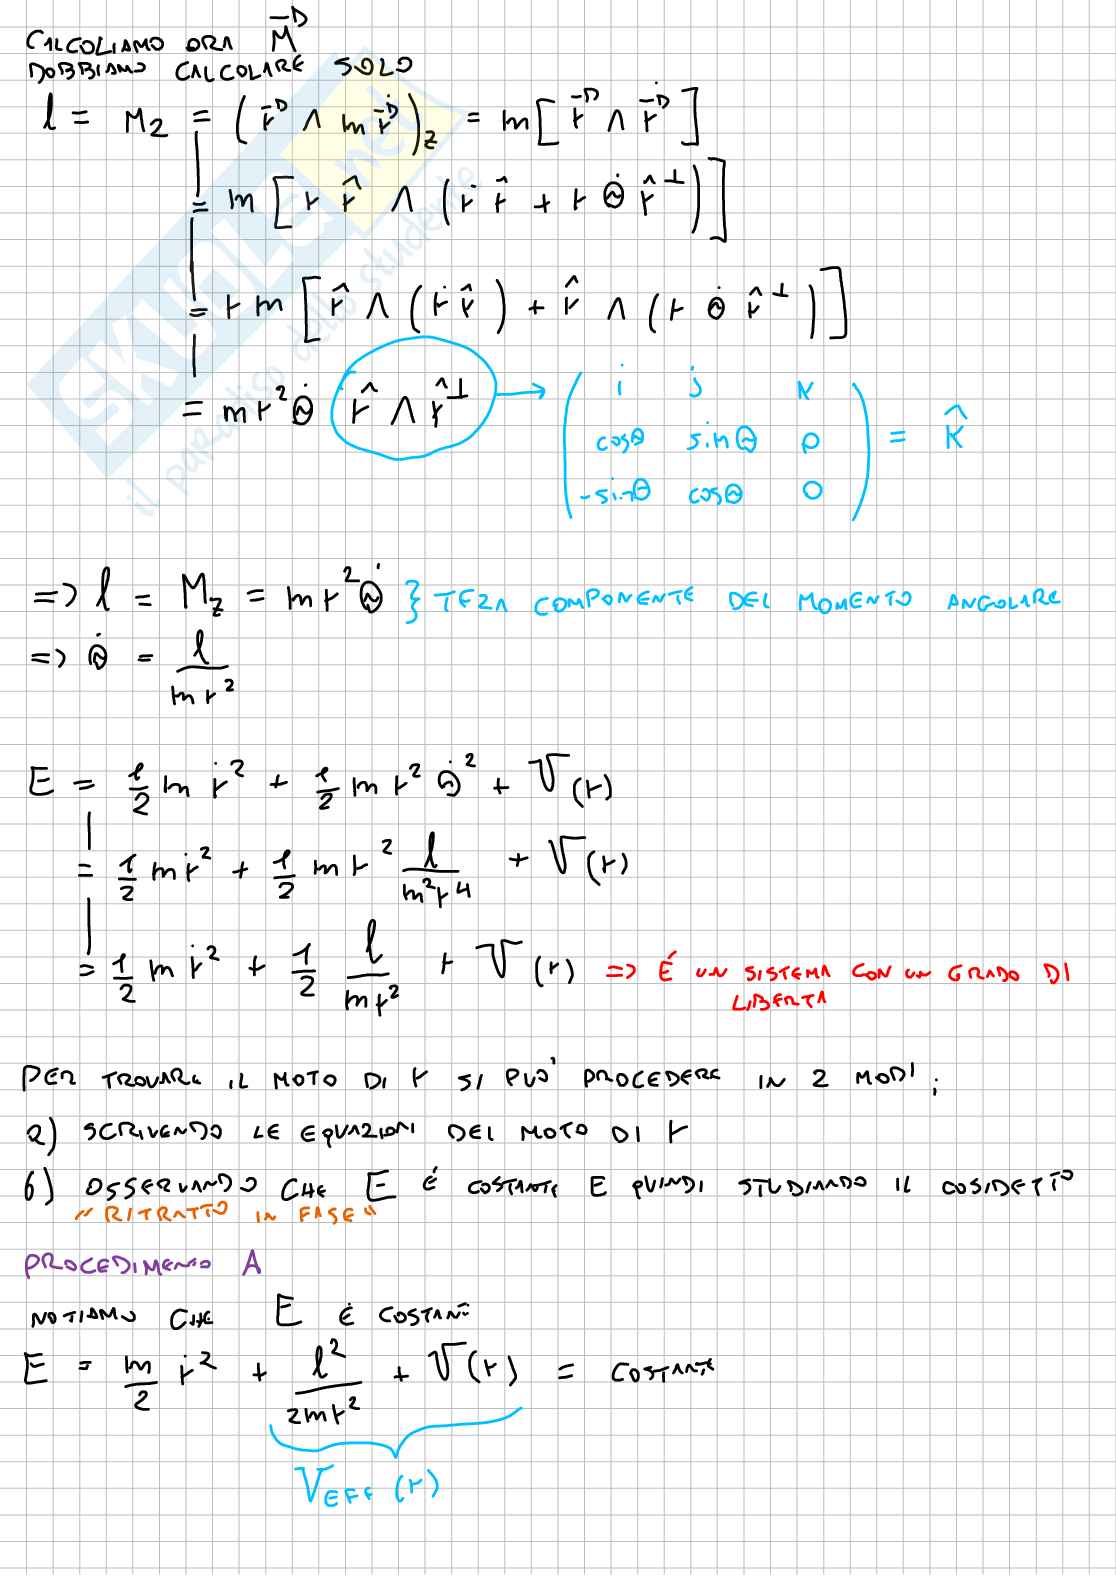 CALCOLIAMO ORA M⃗
DOBBIAMO CALCOLARE SOLO
l = M_z = (r⃗ ∧ m ṙ⃗)_z = m [ r⃗ ∧ ṙ⃗ ]
= m [ r r̂ ∧ ( ṙ r̂ + r θ̇ r̂^⊥ ) ]
= r m [ r̂ ∧ ( ṙ r̂ ) + r̂ ∧ ( r θ̇ r̂^⊥ ) ]
= m r² θ̇ r̂ ∧ r̂^⊥ → ( i j k
cosθ sinθ 0
-sinθ cosθ 0 ) = k̂
=> l = M_z = m r² θ̇ } TEZA COMPONENTE DEL MOMENTO ANGOLARE
=> θ̇ = l / m r²
E = 1/2 m ṙ² + 1/2 m r² θ̇² + V(r)
= 1/2 m ṙ² + 1/2 m r² l / m² r⁴ + V(r)
= 1/2 m ṙ² + 1/2 l / m r² + V(r) => É UN SISTEMA CON UN GRADO DI
LIBERTA
PER TROVARE IL MOTO DI r SI PUO' PROCEDERE IN 2 MODI;
a) SCRIVENDO LE EQUAZIONI DEL MOTO DI r
b) OSSERVANDO CHE E É COSTANTE E QUINDI STUDIANDO IL COSIDETTO
"RITRATTO IN FASE"
PROCEDIMENO A
NOTIAMO CHE E É COSTANTE
E = m/2 ṙ² + l² / 2mr² + V(r) = COSTANTE
V_EFF (r)
SKUOLA.net
il paradiso dello studente